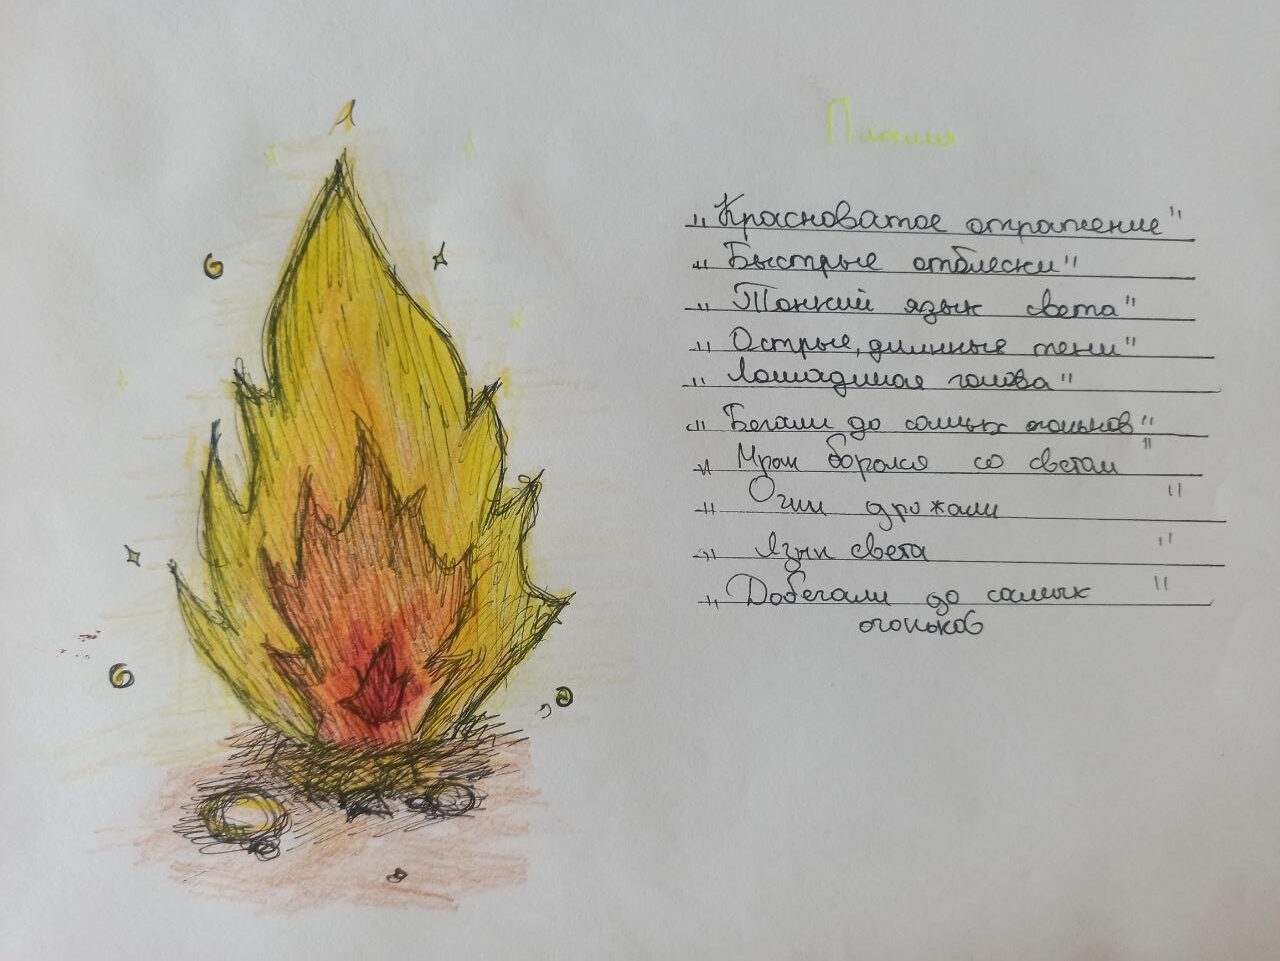 Пламя
„Красноватое отражение"
„Быстрые отблески"
„Тонкий язык света"
„Острые, длинные тени"
„Лошадиная голова"
„Бегали до самых огоньков"
„Мрак боролся со светом"
„Огни дрожали"
„Язык света"
„Добегали до самых "
огоньков